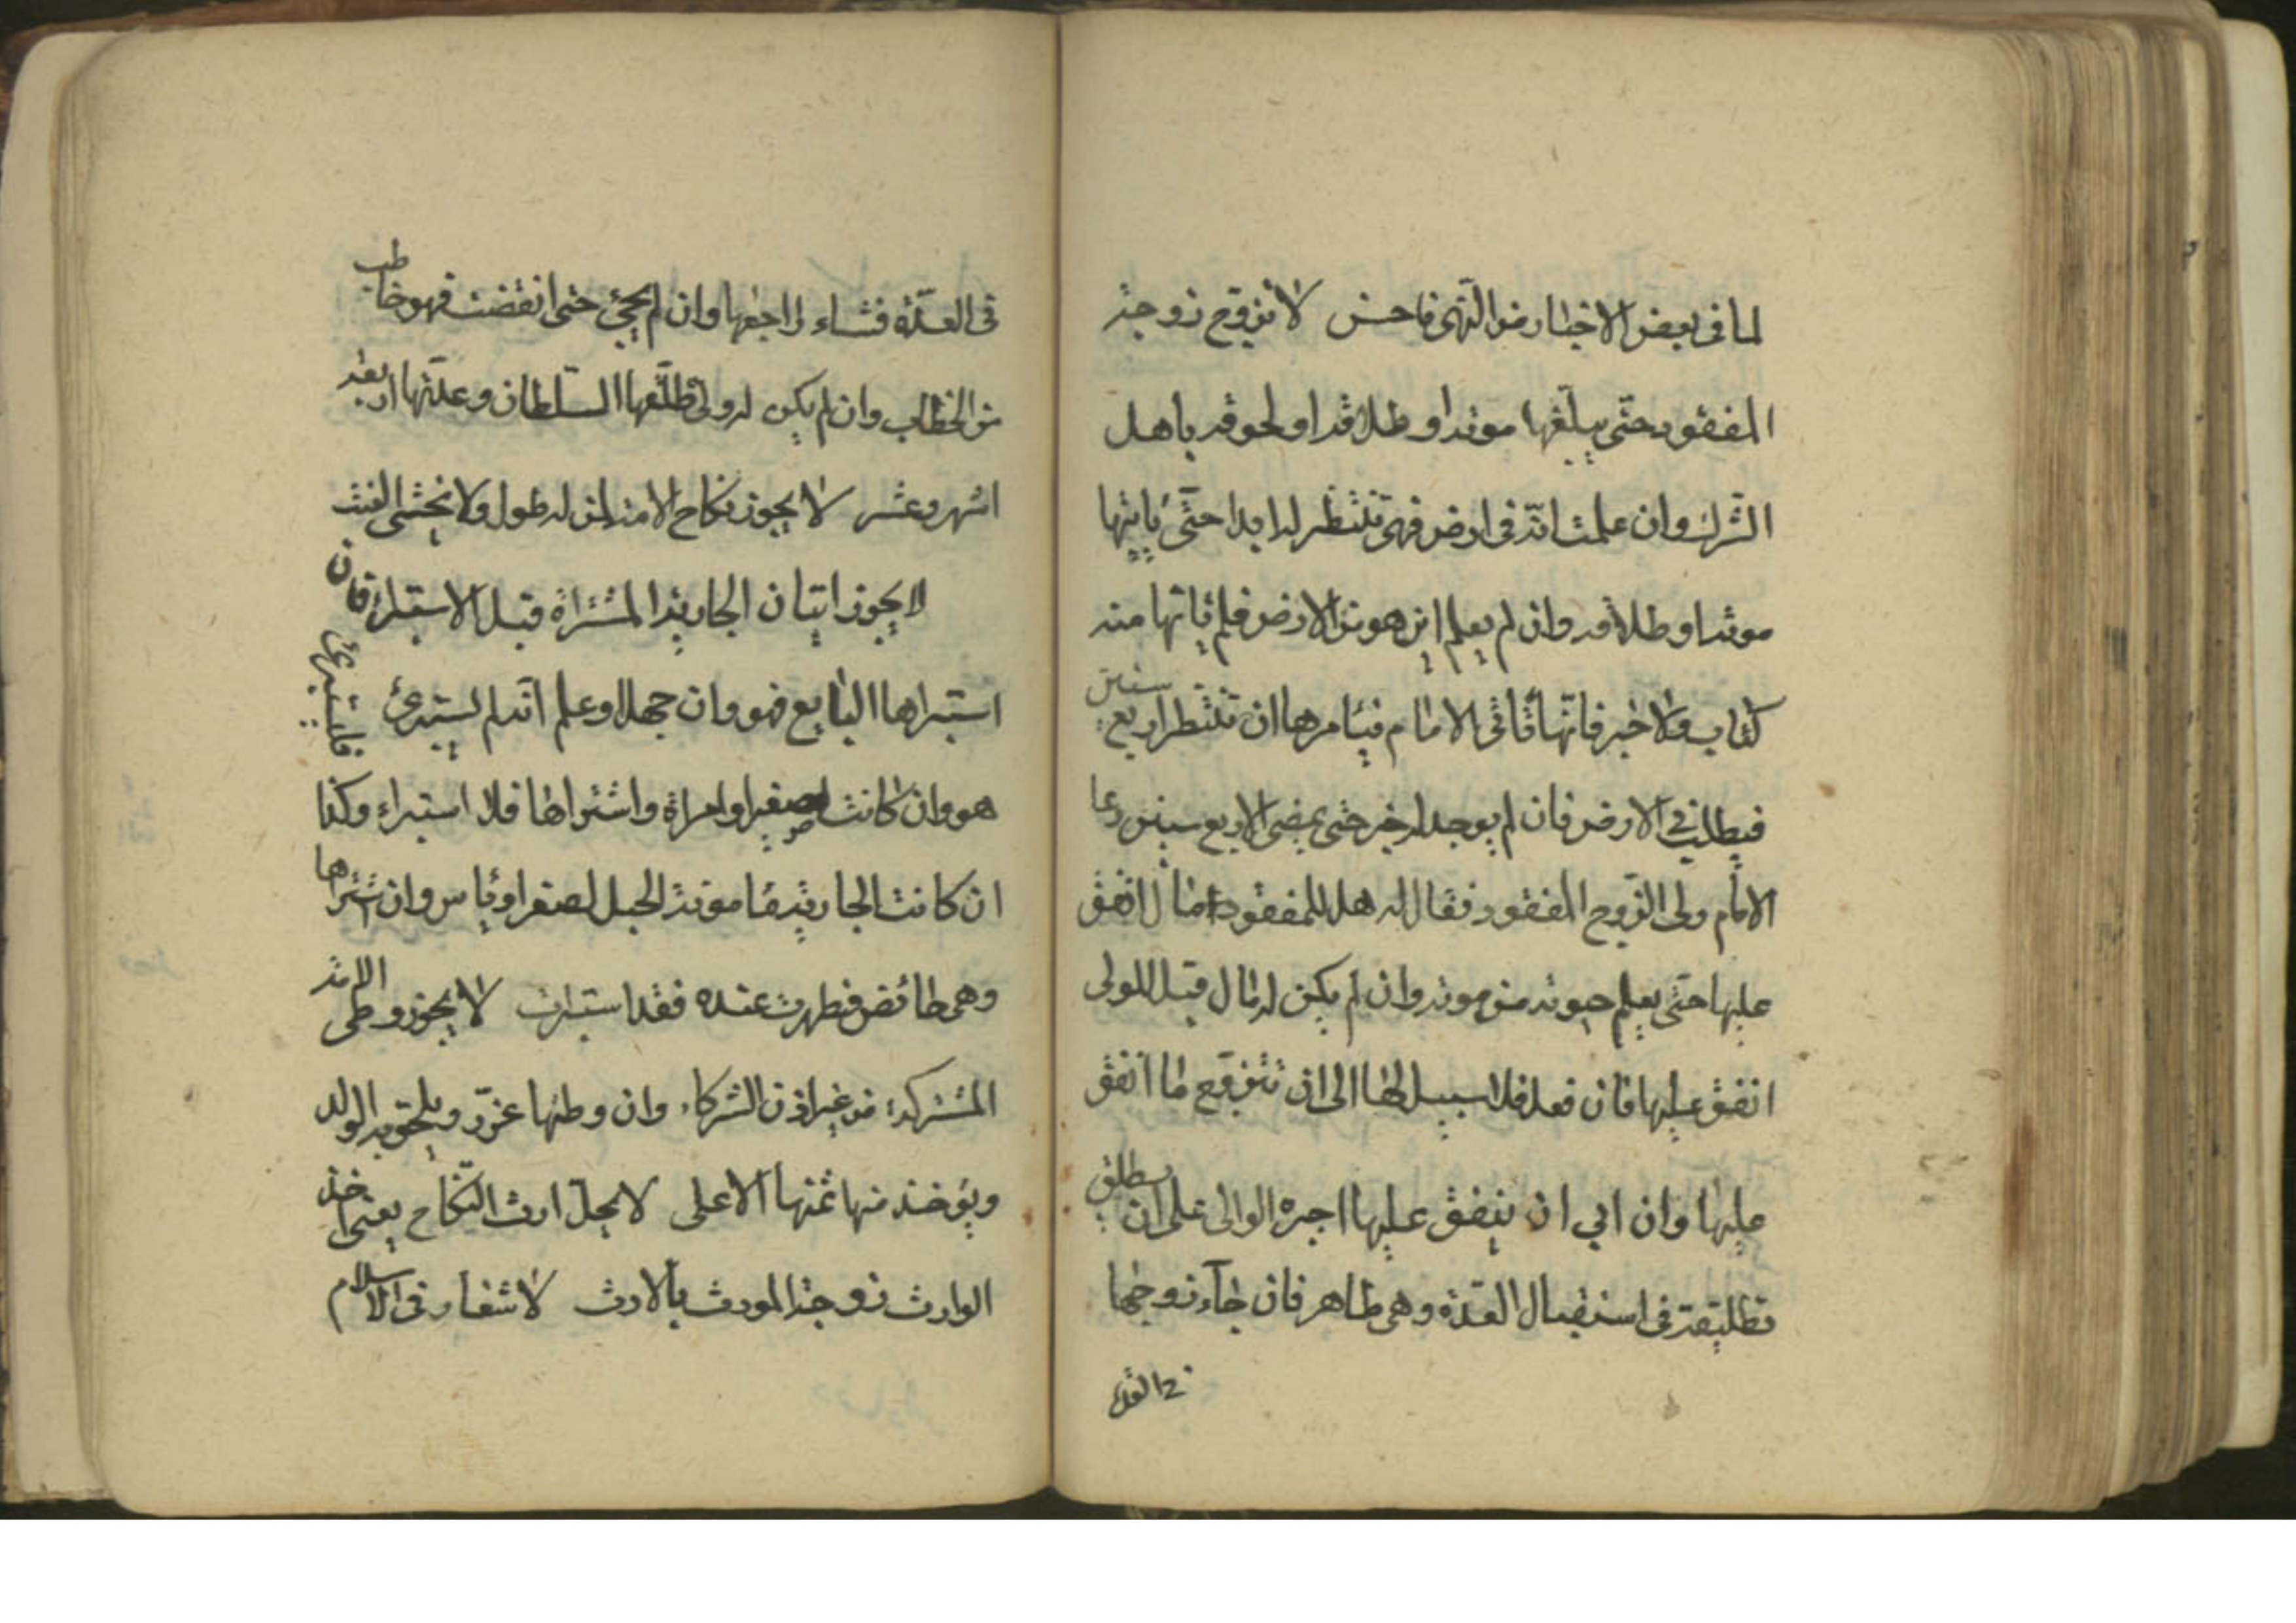 لما فى بعض الاخبار من النّهى فاحش لا تزوّج زوجة
المفقود حتّى يبلّغها موته او طلاقه او لحوقه باهل
الشّرك وان علمت انّه فى ارض فهى تنتظر له ابدا حتّى ياتيها
موته او طلاقه وان لم يعلم اين هو من الارض فلم ياتها منه
كتاب ولا خبر فانّها تاتى الامام فيامرها ان تنتظر اربع سنين
فيطلب فى الارض فان لم يوجد له خبر حتى يمضى الاربع سنين دعا
الامام ولى الزّوج المفقود فقال له هل للمفقود مال انفق
عليها حتى يعلم حيوته من موته وان لم يكن له مال قيل للولى
انفق عليها فان فعل فلا سبيل لها الى ان تتزوّج ما انفق
عليها وان ابى ان ينفق عليها اجبره الوالى على ان يطلق
تطليقة فى استقبال العدّة وهى طاهر فان جآء زوجها
فى العدّة
فى العدّة فشاء راجعها وان لم يجئ حتى انقضت فهو خاطب
من الخطاب وان لم يكن له ولى طلّقها السّلطان وعدّتها اربعة
اشهر وعشر لا يجوز نكاح الامة لمن له طول ولا يخشى العنت
لا يجوز اتيان الجارية المشتراة قبل الاستبراء فان
استبراها البايع فهو وان جهل او علم انّه لم يستبرئ فليستبرئ
هو وان كانت لصغير او امراة واشتراها فلا استبراء وكذا
ان كانت الجارية مامونة الحبل لصغر او ياس وان اشتراها
وهى حائض فطهرت عنده فقد استبرات لا يجوز وطى الامة
المشتركة من غير اذن الشركاء وان وطئها عزّر ويلحق به الولد
ويؤخذ منها ثمنها الاعلى لا يحلّ ارث النّكاح يعنى اخذ
الوارث زوجة المورث بالارث لا شغار فى الاسلام